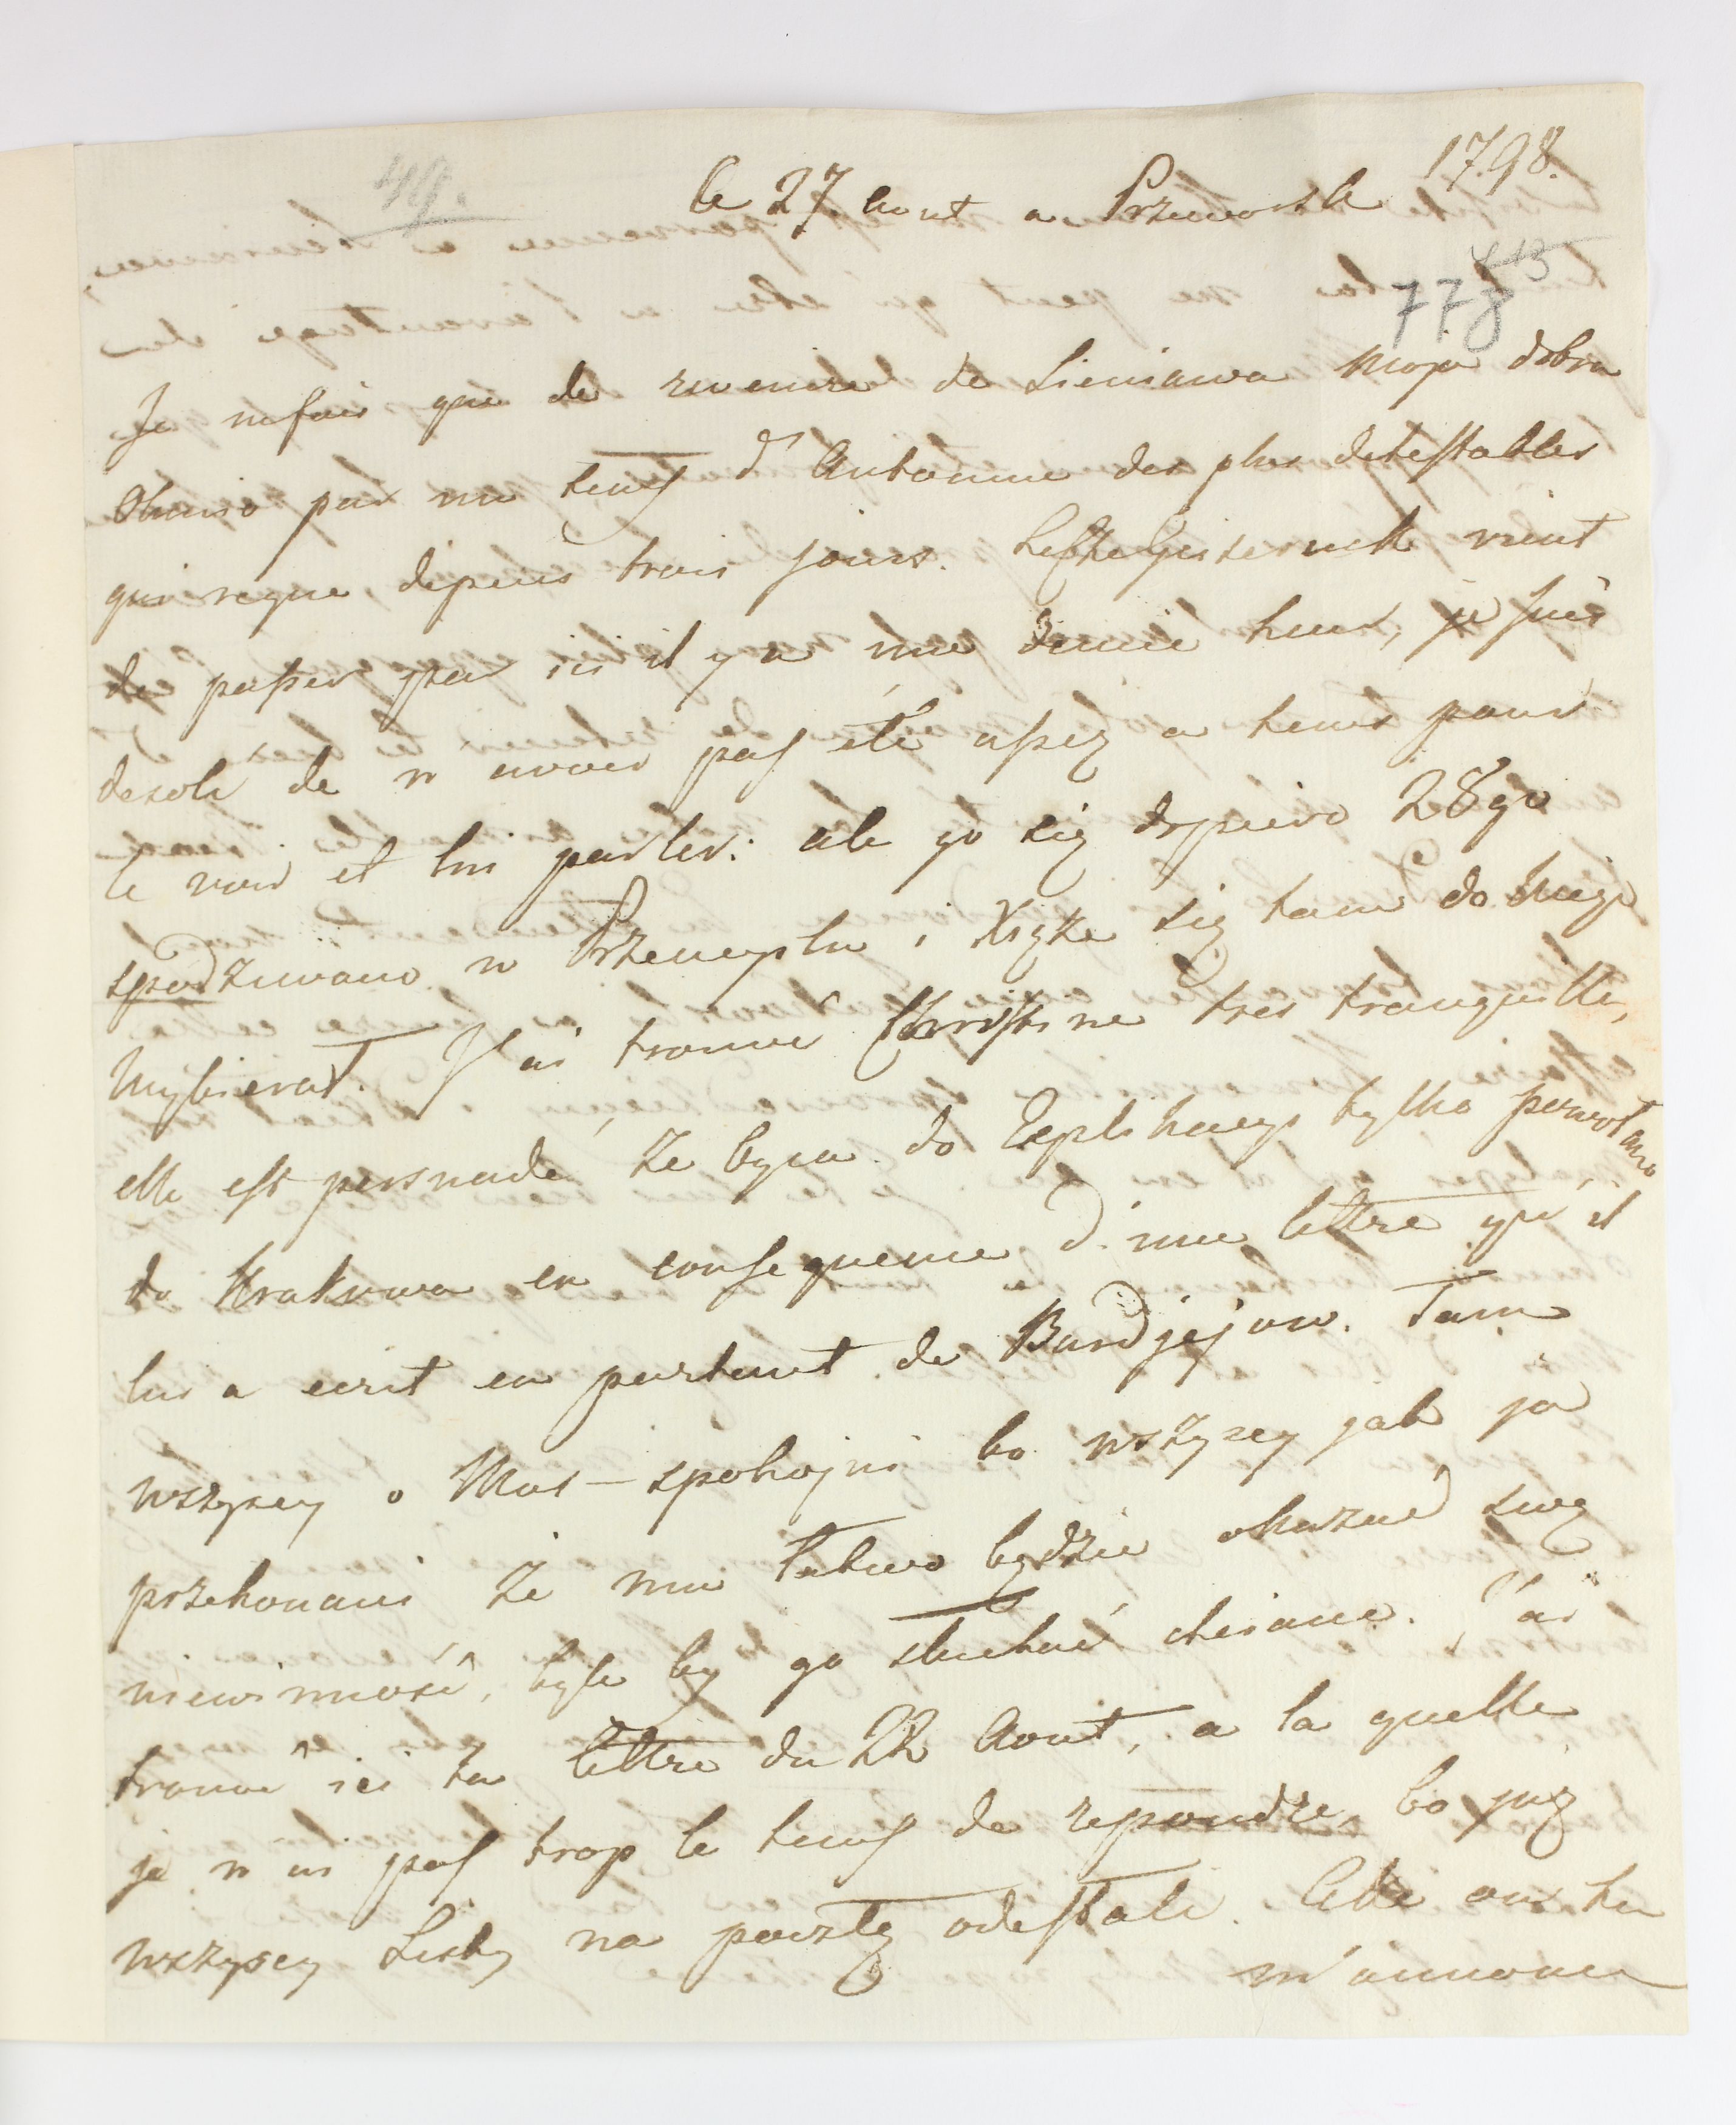 49.
le 27. Aout a Przeworsk 1798.
413
778
Je nefais que de revenire de Sieniawa moja dobra
Omcio par un temps d'Autonne des plus detestables
qui regne, depuis trois jours. vient
de passer par ici il y a une demie heur, je suis
desolé de n'avoir pas été assez a tems pour
le voir et lui parler: ale go się dopiero 28go
spodziwano w Przemyslu i Xiąże się tam do niego
wybierał. J'ai trouvé Christine tres tranquille,
elle est persuadé, że Igna. do Teplickiego tylko powołano
do Krakowa en consequence d'une lettre qu'il
lui a ecrit en partant de Bardjejow. Tam
wszyscy o Mos- spokojni bo wszyscy jak ja
przekonani że mu łatwo będzie okazać swą
niewinność, byle by go słuchać chciano. J'ai
trouvé ici ta lettre du 22 Aout, a la quelle
je n'ai pas trop le temps de repondre, bo już
wszyscy Listy na pocztę odesłali. Cette ou tu
m'annonce